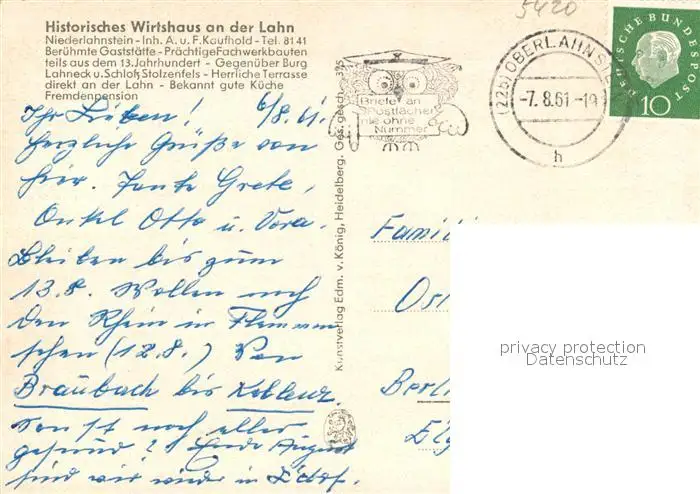 Historisches Wirtshaus an der Lahn
Niederlahnstein - Inh. A. u. F. Kaufhold - Tel. 8141
Berühmte Gaststätte - Prächtige Fachwerkbauten
teils aus dem 13. Jahrhundert - Gegenüber Burg
Lahneck u. Schloß Stolzenfels - Herrliche Terrasse
direkt an der Lahn - Bekannt gute Küche
Fremdenpension
Ihr Lieben! 6/8.61.
Herzliche Grüße von
hier. Tante Grete,
Onkel Otto u. Vera.
Bleiben bis zum
13.8. Wollen noch
den Rhein in Flammen
sehen (12.8.) Von
Braubach bis Koblenz.
Sonst noch alles
gesund? Ende August
sind wir wieder in
Kunstverlag Edm. v. König, Heidelberg. Ges. gesch.
5420
Briefe an
Postfächer
nie ohne
Nummer
(22b) OBERLAHNS
-7.8.61-19
h
DEUTSCHE BUNDESPOST
10
Famili
Ost
Berli
privacy protection
Datenschutz